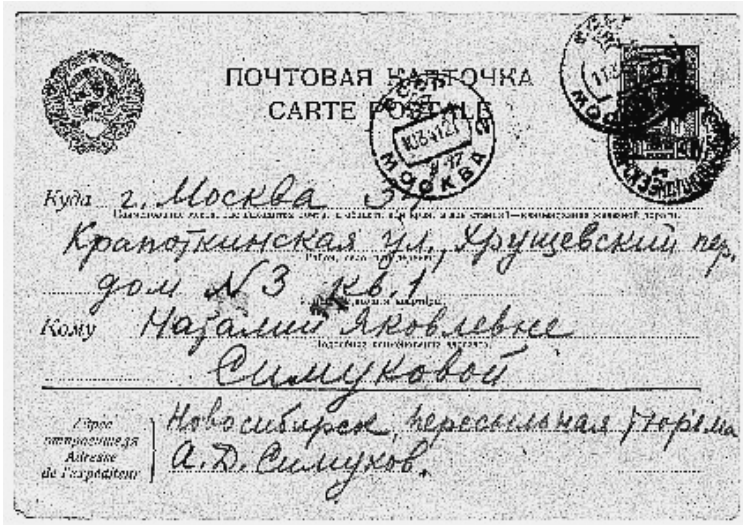 ПОЧТОВАЯ КАРТОЧКА
CARTE POSTALE
МОСКВА
Куда г. Москва 34
Крапоткинская ул., Хрущевский пер.
дом №3 кв. 1
Кому Наталии Яковлевне
Симуковой
Адрес отправителя
Adresse de l'expéditeur
Новосибирск, пересыльная тюрьма
А. Д. Симуков.